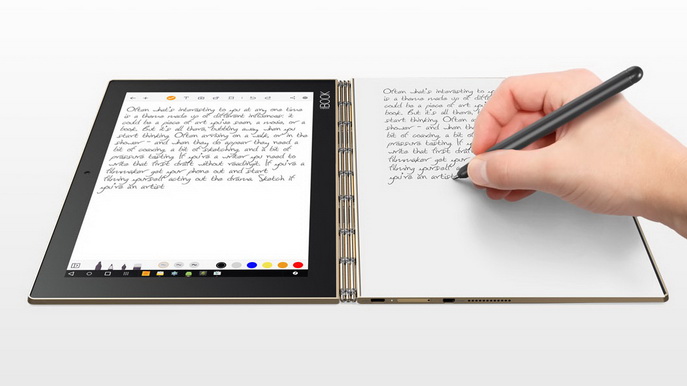 Often what's interesting to you at any one time
is a theme made up of different influences. It
could be a piece of art you've seen, a movie, or a
book. But it's all there, bubbling away when you
start thinking. Often arriving on a walk, or in the
shower - and when they do appear they need a
bit of coaxing, a bit of sketching, and a bit of
pressure testing. If you're a writer you need to
write that first draft without reading it. If you're a
filmmaker get your phone out and start
filming yourself acting out the drama. Sketch if
you're an artist
BOOK
Often what's interesting to yo
is a theme made up of diff
could be a piece of art yo
book. But it's all there
start thinking. Often
shower - and when
bit of coaxing, a bit
pressure testing. If
write that first dra
filmmaker get your
filming yourself
you're an artist